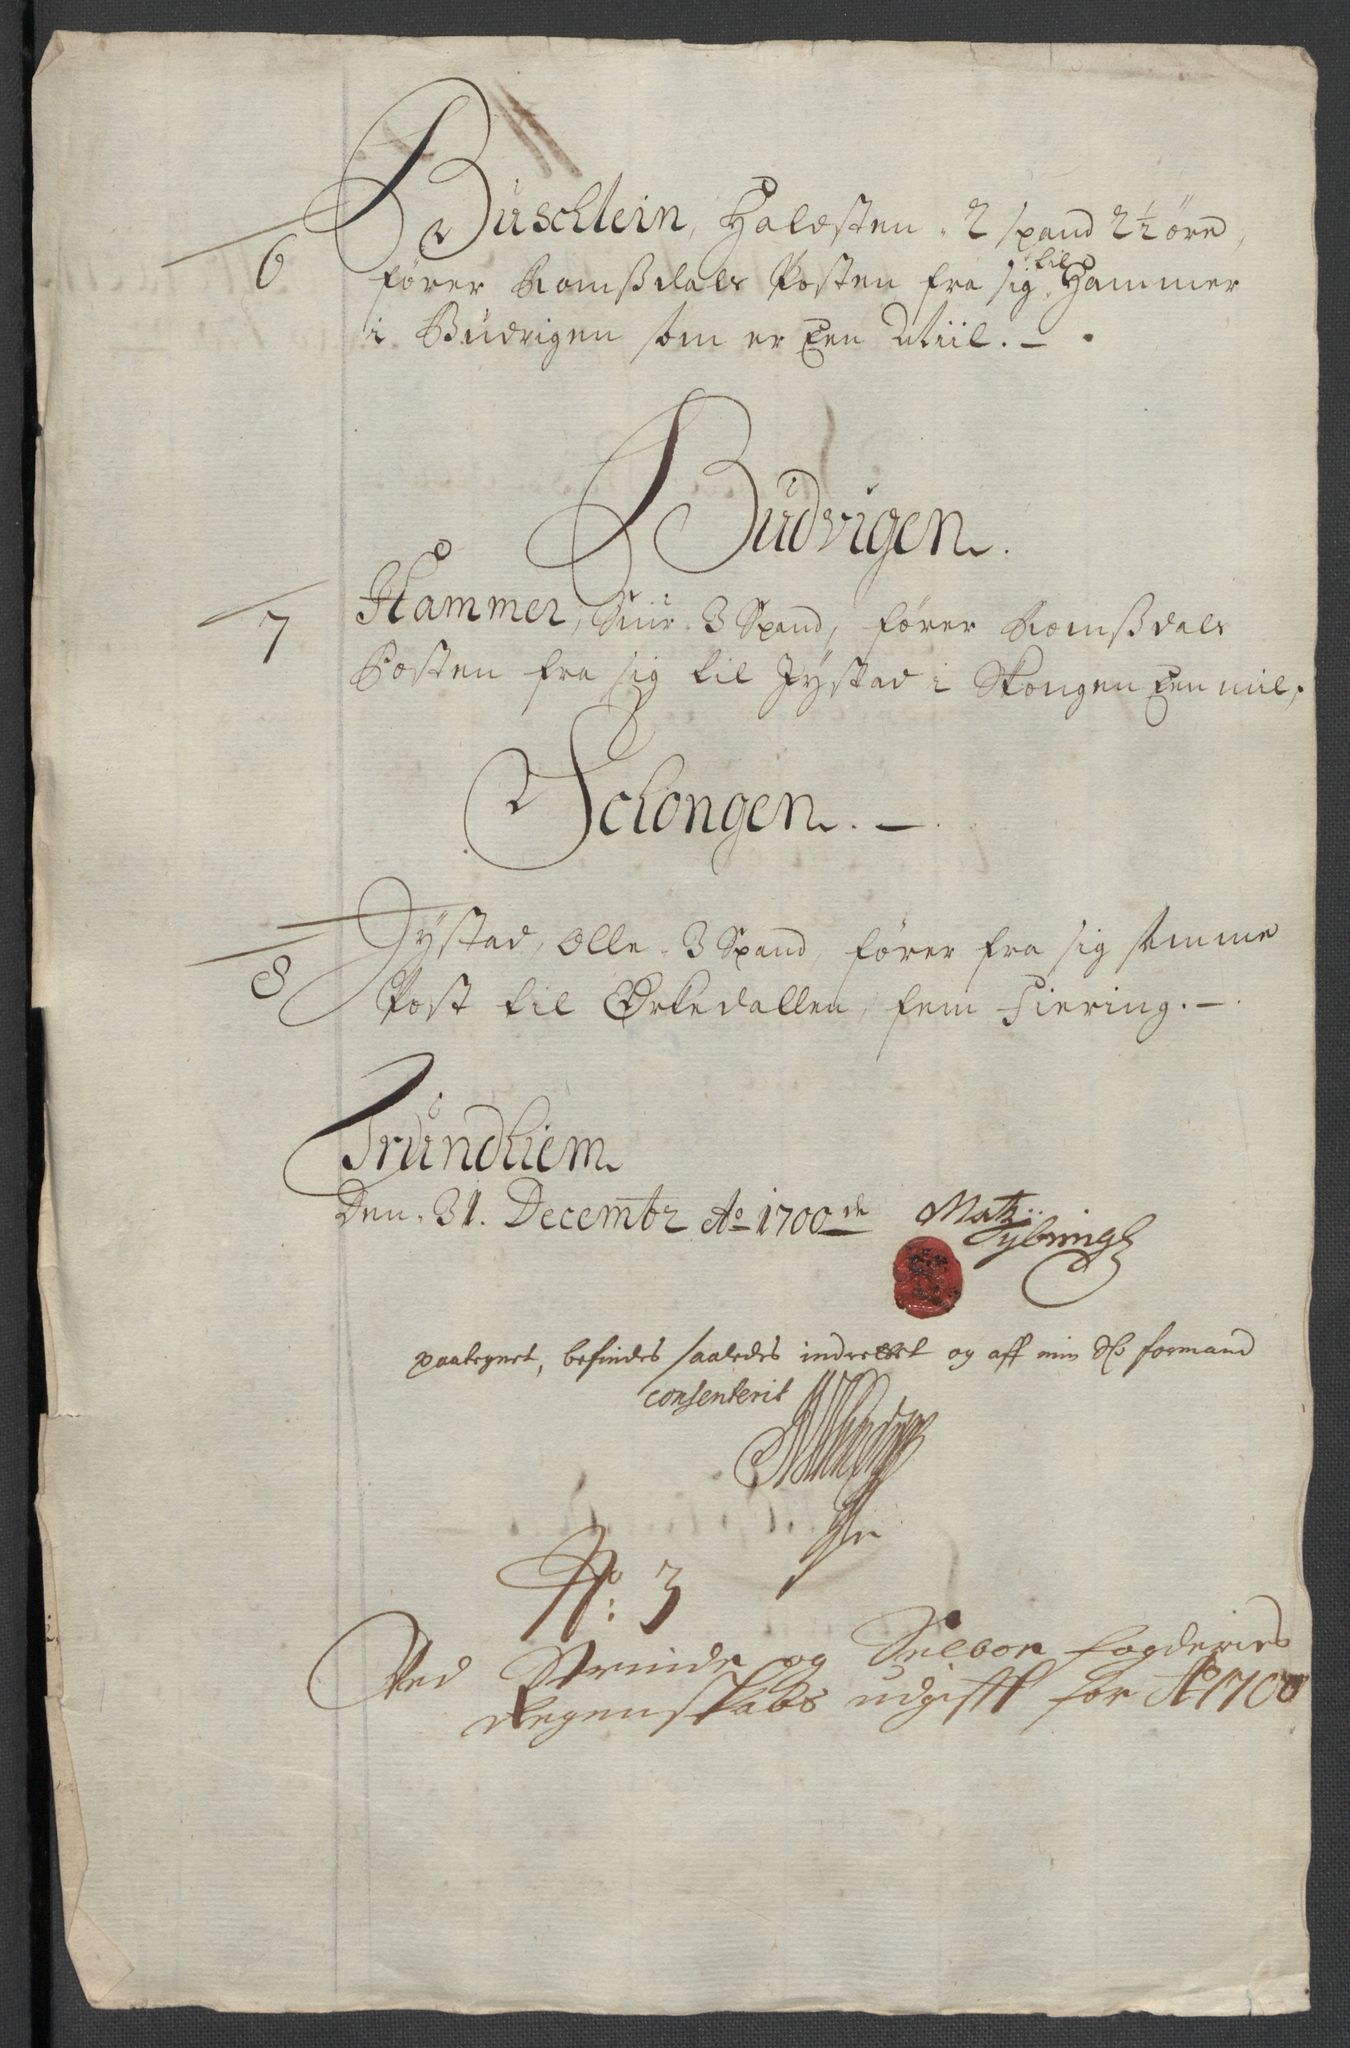 6 Buschlein, Haldsten. 2 spand 2½ øre,
fører Romßdals Posten fra sig til Hammer
i Budvigen som er Een Miil. –
Budvigen.
7 Hammer, Siur. 3 Spand, fører Romßdals
Posten fra sig til Jÿstad i Skongen Een miil,
Schongen. –
8 Jÿstad, Olle. 3 Spand, fører fra sig samme
Post til Ørkedallen, fem Fiering. –
Trundhiem
Den. 31. Decembr Ao 1700de
Matz:
paategnet, befindes saaledes indrettet og aff min Sl formand
consenterit
No: 3
Ved Strinde og Selboe fogderies
Regenskabs udgifft for Ao 1700